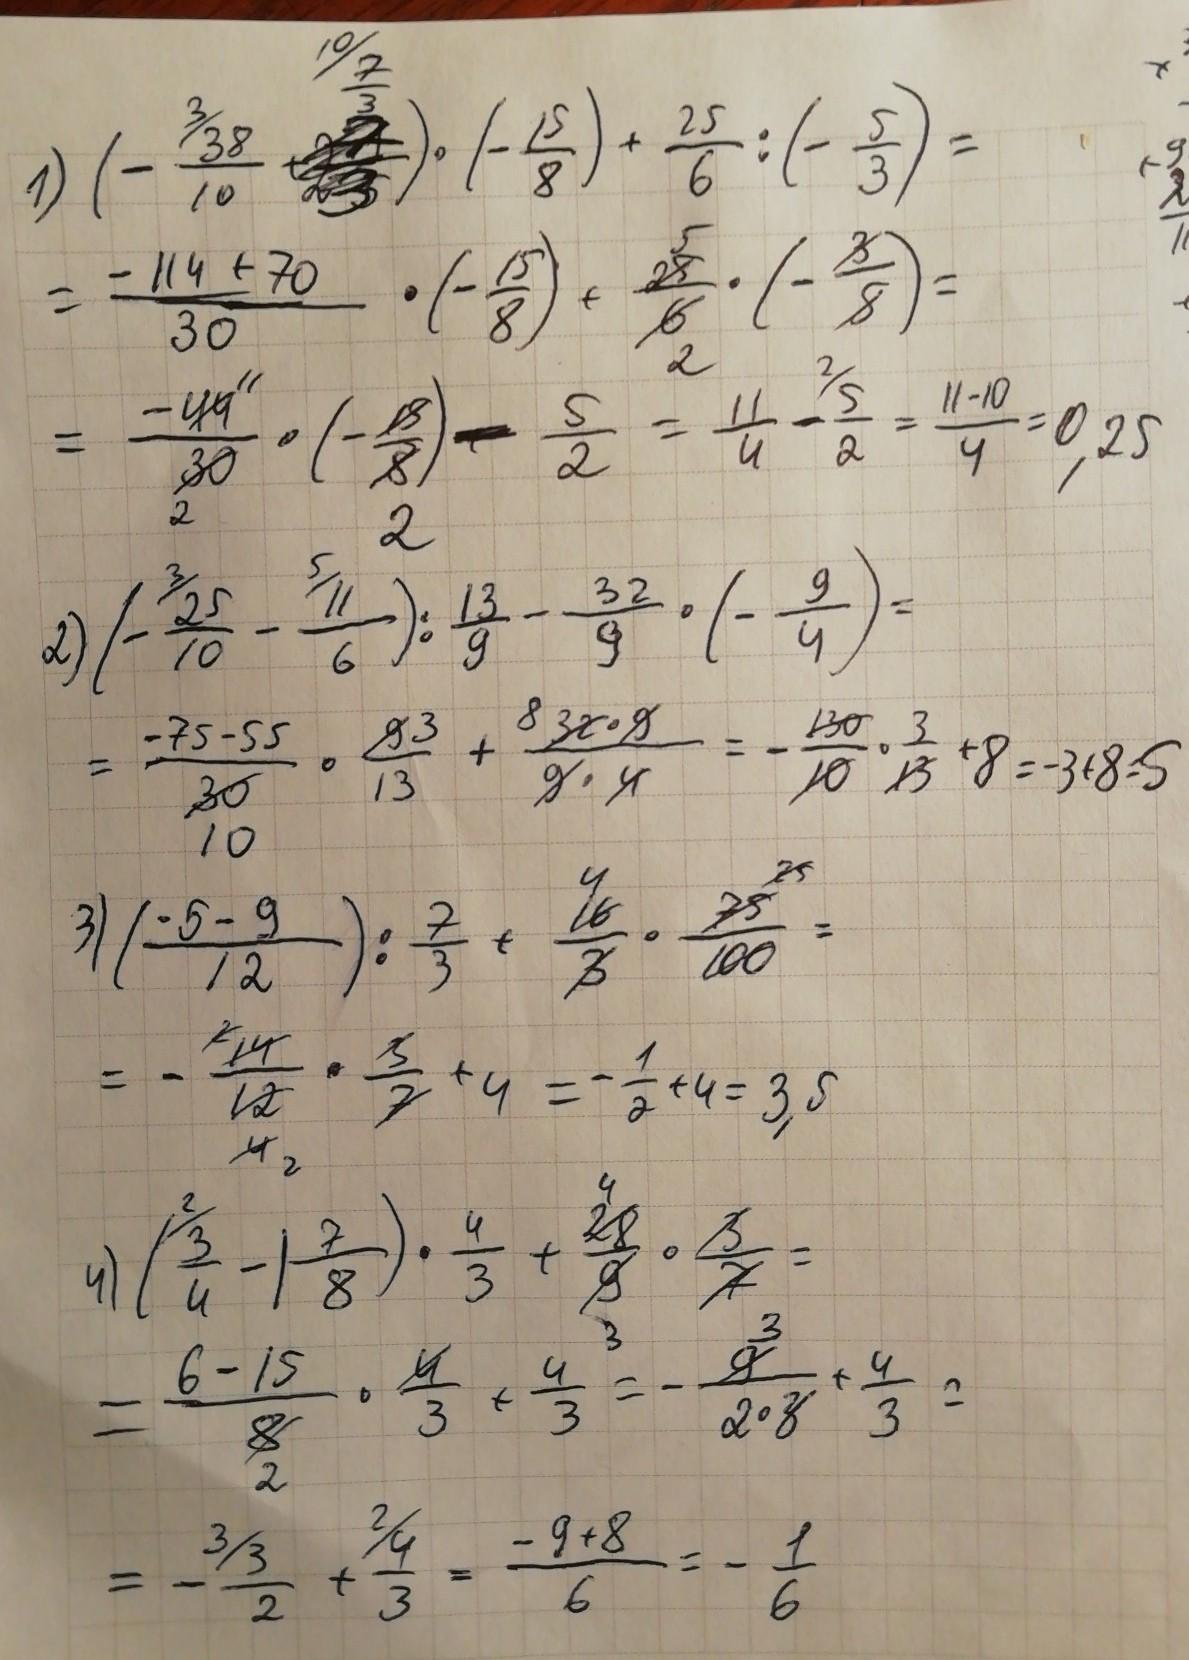 1) (- 3/38/10 + 10/7/3) · (- 15/8) + 25/6 : (- 5/3) =
= (-114 + 70)/30 · (- 15/8) + 25/6 5 2 · (- 3/5) =
= -44/30 11 2 · (- 15/8) 2 - 5/2 = 11/4 - 2/5/2 = (11-10)/4 = 0,25
2) (- 3/25/10 - 5/11/6) : 13/9 - 32/9 · (- 9/4) =
= (-75-55)/30 10 · 9 3/13 + 8 (32·9)/(9·4) = - 130/10 · 3/13 + 8 = -3+8=5
3) ((-5-9)/12) : 7/3 + 4 16/3 · 75/100 25 =
= - 2 14/12 4 2 · 3/7 + 4 = - 1/2 + 4 = 3,5
4) (2/3/4 - 1 7/8) · 4/3 + 4 28/9 3 · 3/7 =
= (6-15)/8 2 · 4/3 + 4/3 = - 9 3/(2·3) + 4/3 =
= - 3/3/2 + 2/4/3 = (-9+8)/6 = - 1/6